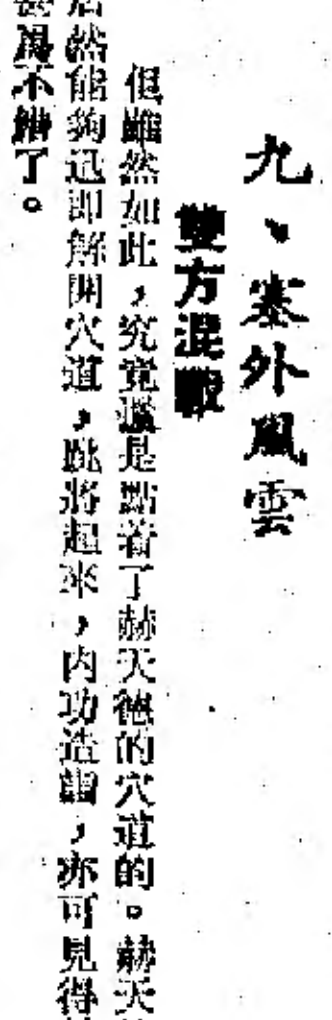 九、塞外風雲
雙方混戰
但雖然如此，究竟還是點着了赫天德的穴道的。赫天
居然能夠迅即解開穴道，跳將起來，內功造詣，亦可見得
甚爲不錯了。